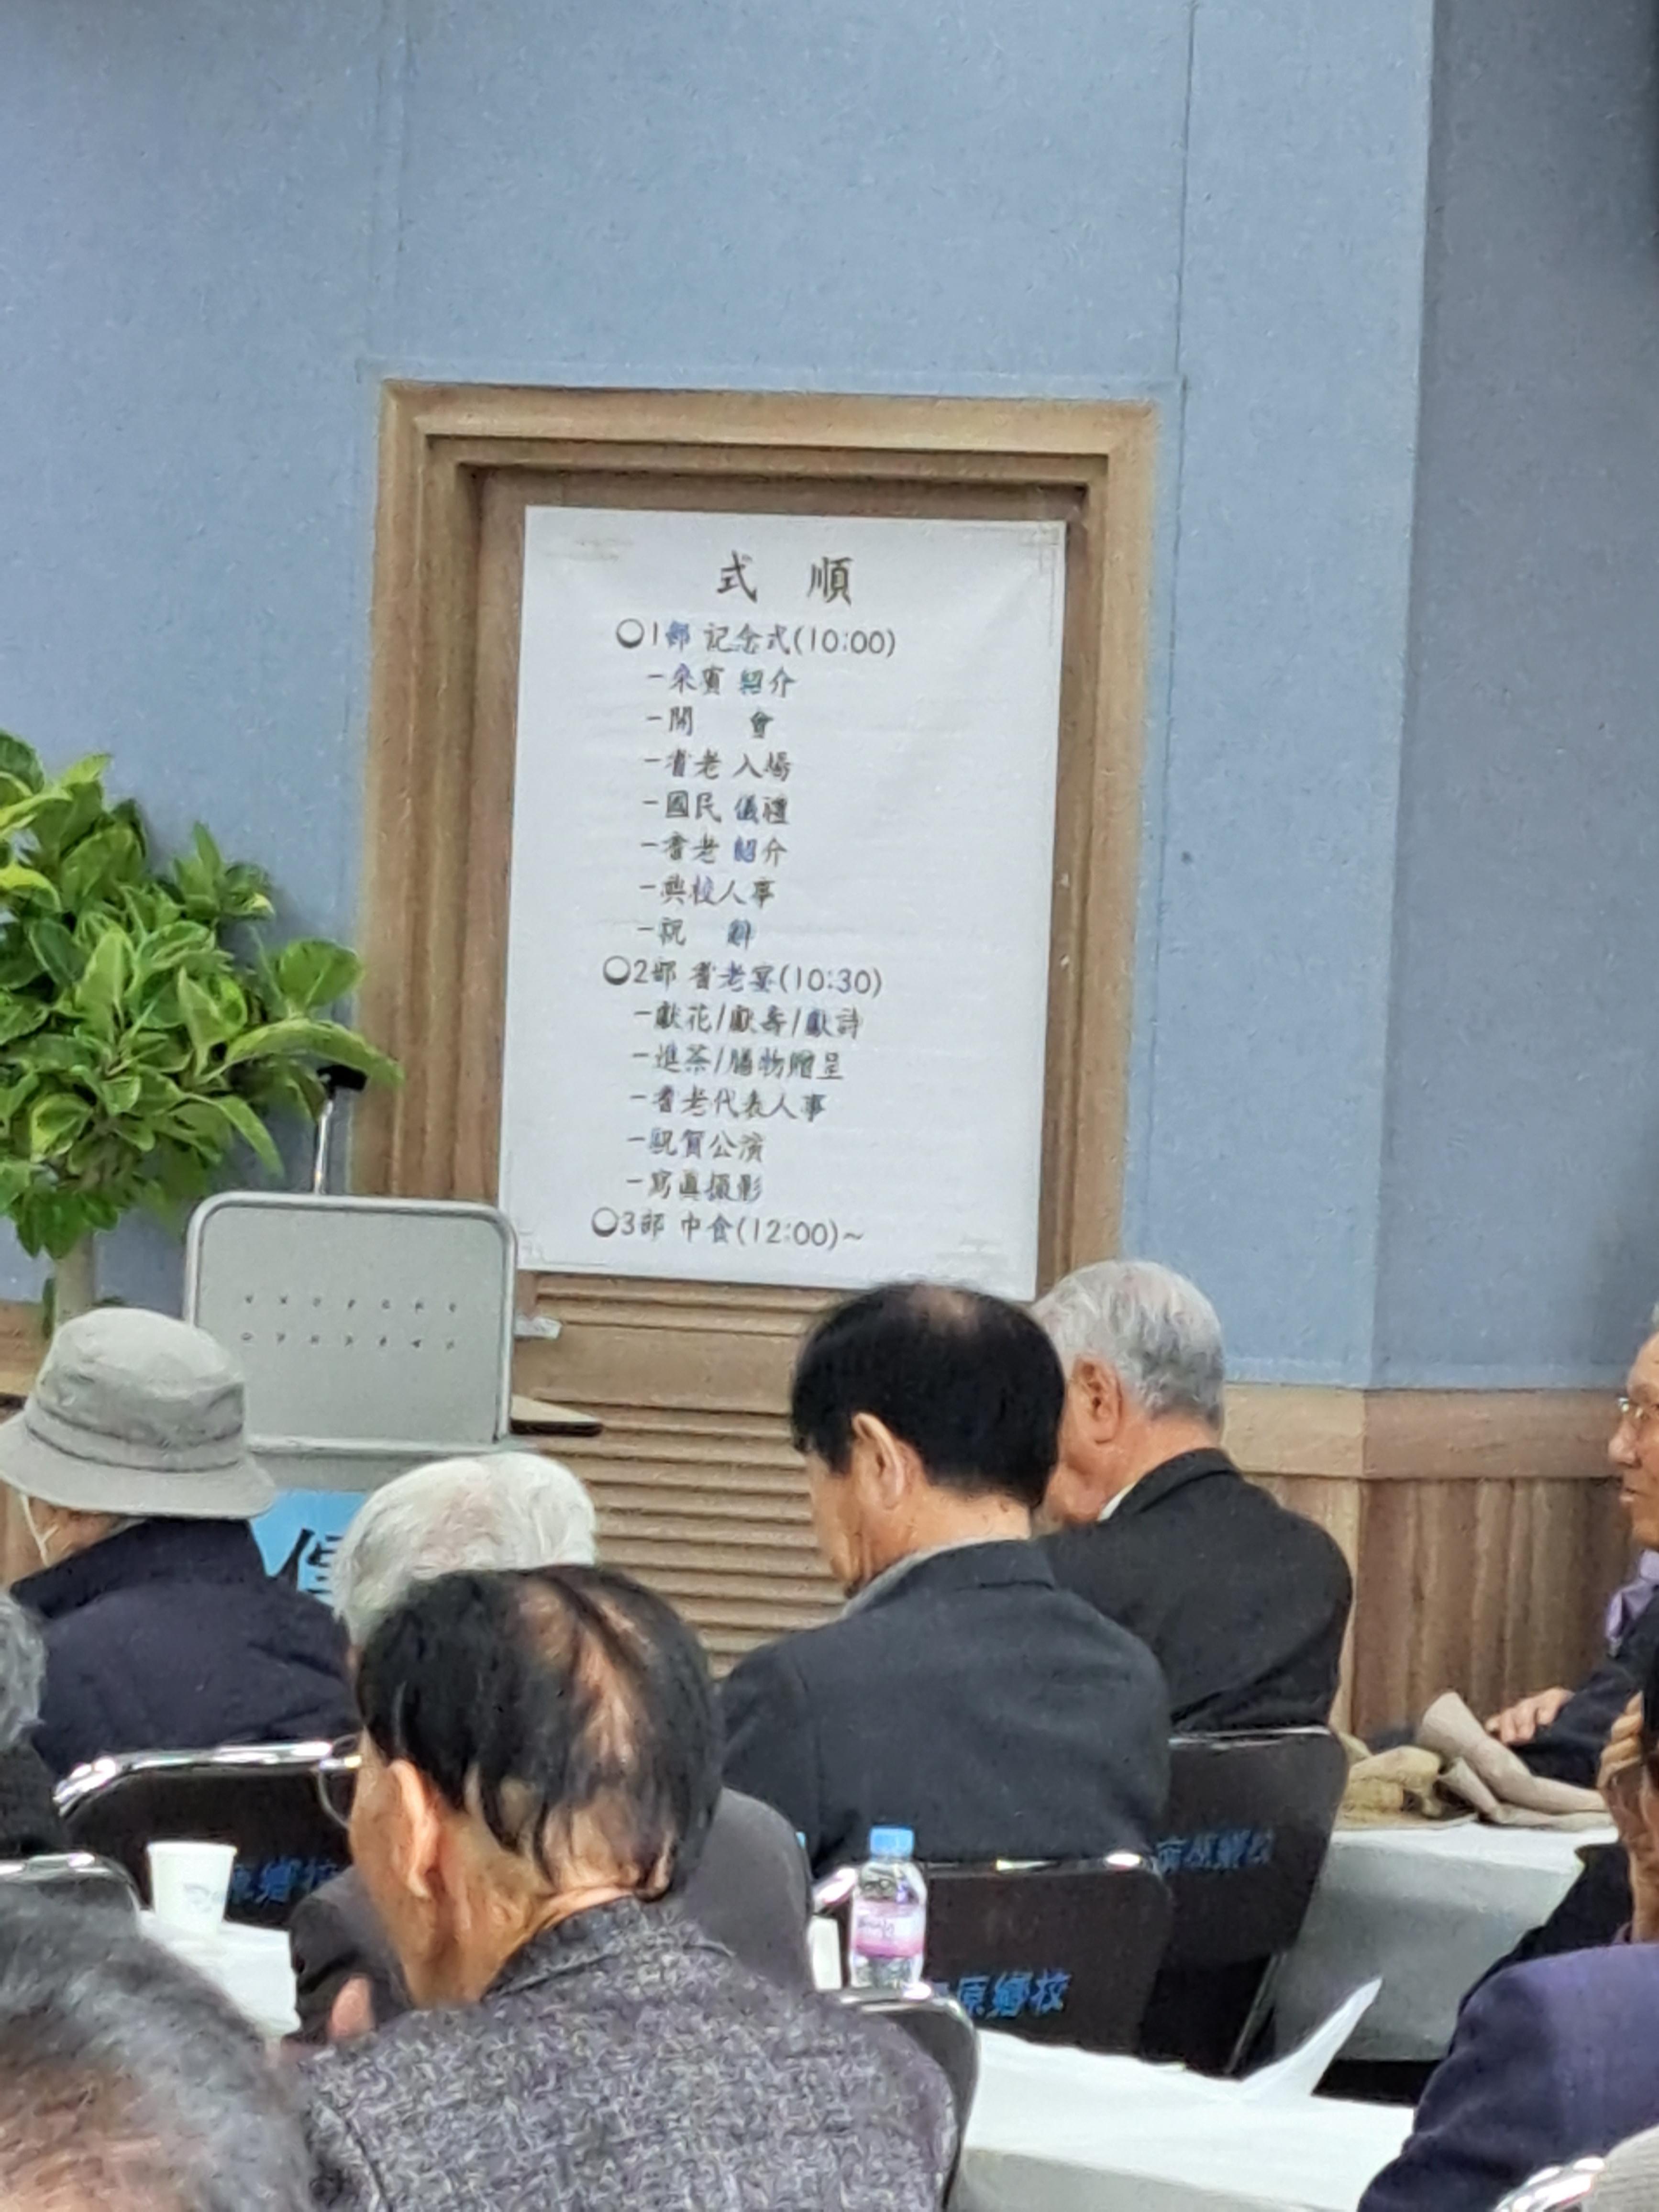 式 順
○1部 記念式(10:00)
-來賓 紹介
-開 會
-耆老 入場
-國民 儀禮
-耆老 紹介
-典校人事
-祝 辭
○2部 耆老宴(10:30)
-獻花/獻壽/獻詩
-進茶/膳物贈呈
-耆老代表人事
-祝賀公演
-寫眞撮影
○3部 中食(12:00)~
原鄕校
鄕校
原鄕校